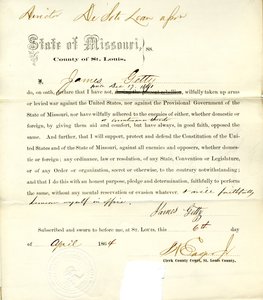 De Soto Loan
State of Missouri, } SS.
County of St. Louis,
I, James Getty
since Dec 17, 1861
do, on oath, declare that I have not, during the present rebellion, wilfully taken up arms
or levied war against the United States, nor against the Provisional Government of the
State of Missouri, nor have wilfully adhered to the enemies of either, whether domestic or
foreign, by giving them aid and comfort, but have always, in good faith, opposed the
same. And further, that I will support, protect and defend the Constitution of the Uni-
ted States and of the State of Missouri, against all enemies and opposers, whether domes-
tic or foreign; any ordinance, law or resolution, of any State, Convention or Legislature,
or of any Order or organization, secret or otherwise, to the contrary notwithstanding; and
that I do this with an honest purpose, pledge and determination, faithfully to perform
the same, without any mental reservation or evasion whatever. & will faithfully
demean myself in office.
James Getty
Subscribed and sworn to before me, at St. Louis, this 6th day
of April 1864
Clerk County Court, St. Louis County.